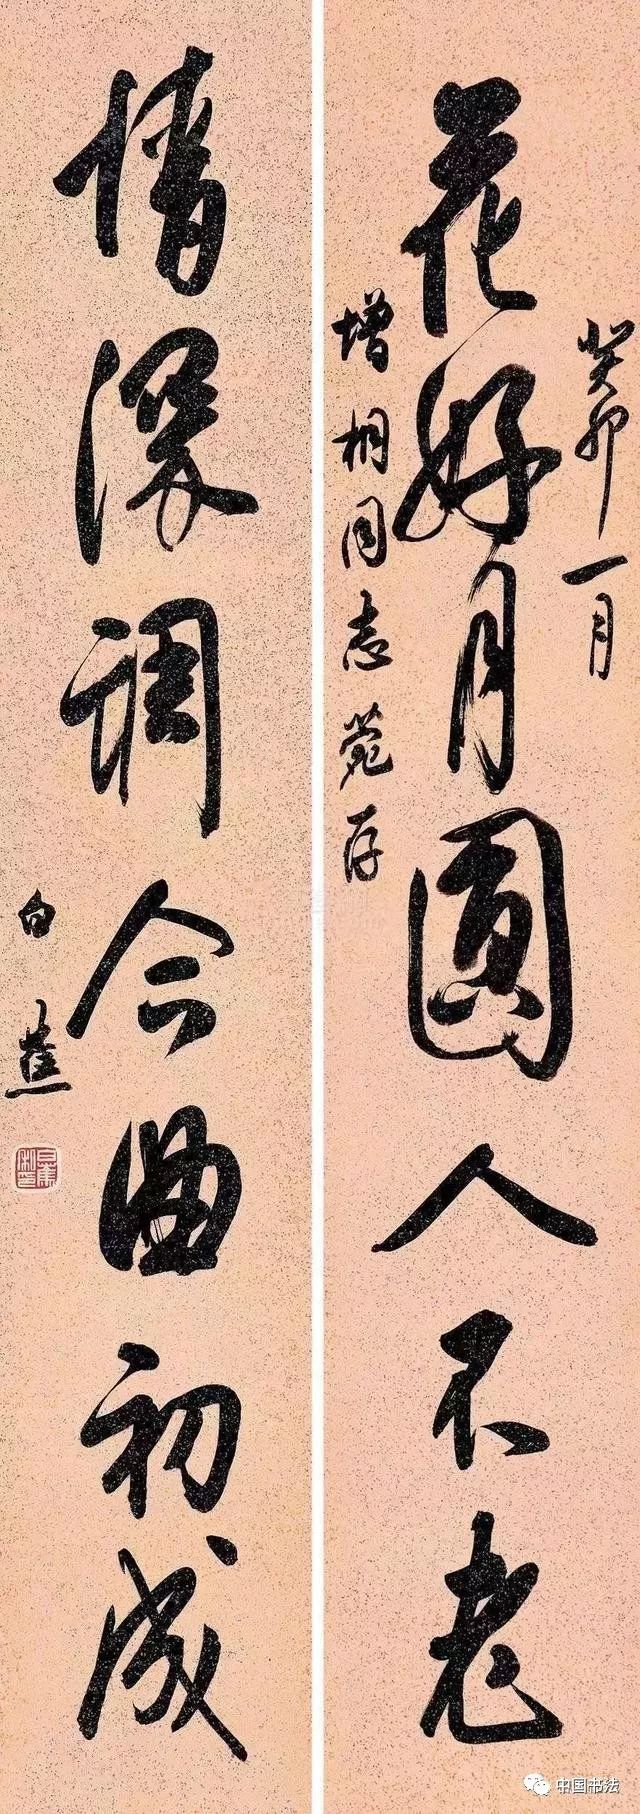 癸卯一月
花好月圆人不老
增相同志
存
情深调合曲初成
白蕉
中国书法